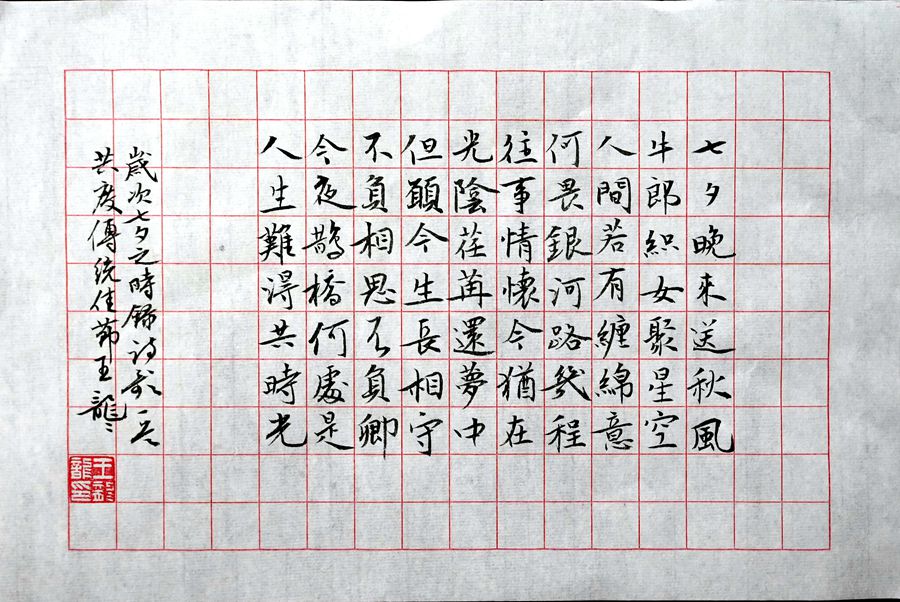 七夕晚來送秋風
牛郎織女聚星空
人間若有纏綿意
何畏銀河路幾程
往事情懷今猶在
光陰荏苒還夢中
但願今生長相守
不負相思不負卿
今夜鵲橋何處是
人生難得共時光
歲次七夕之時錄詩歌一首
共度傳統佳節王龍
王龍印